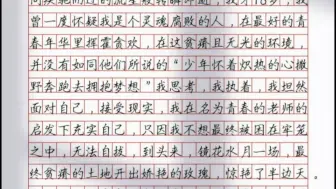 曾一度怀疑我是个灵魂腐败的人，在最好的青
春年华里挥霍贪欢，在这贫瘠且无光的环境，
并没有如同他们所说的“少年怀着炽热的心撒
野奔跑去拥抱梦想”我思考，我执着，我坦然
面对自己，接受现实，我在名为青春的老师的
启发下充实自己，只因我不想最终被困在牢笼
之中，无法自拔，到头来，镜花水月一场，最
终贫瘠的土地开出娇艳的玫瑰，惊艳了半边天